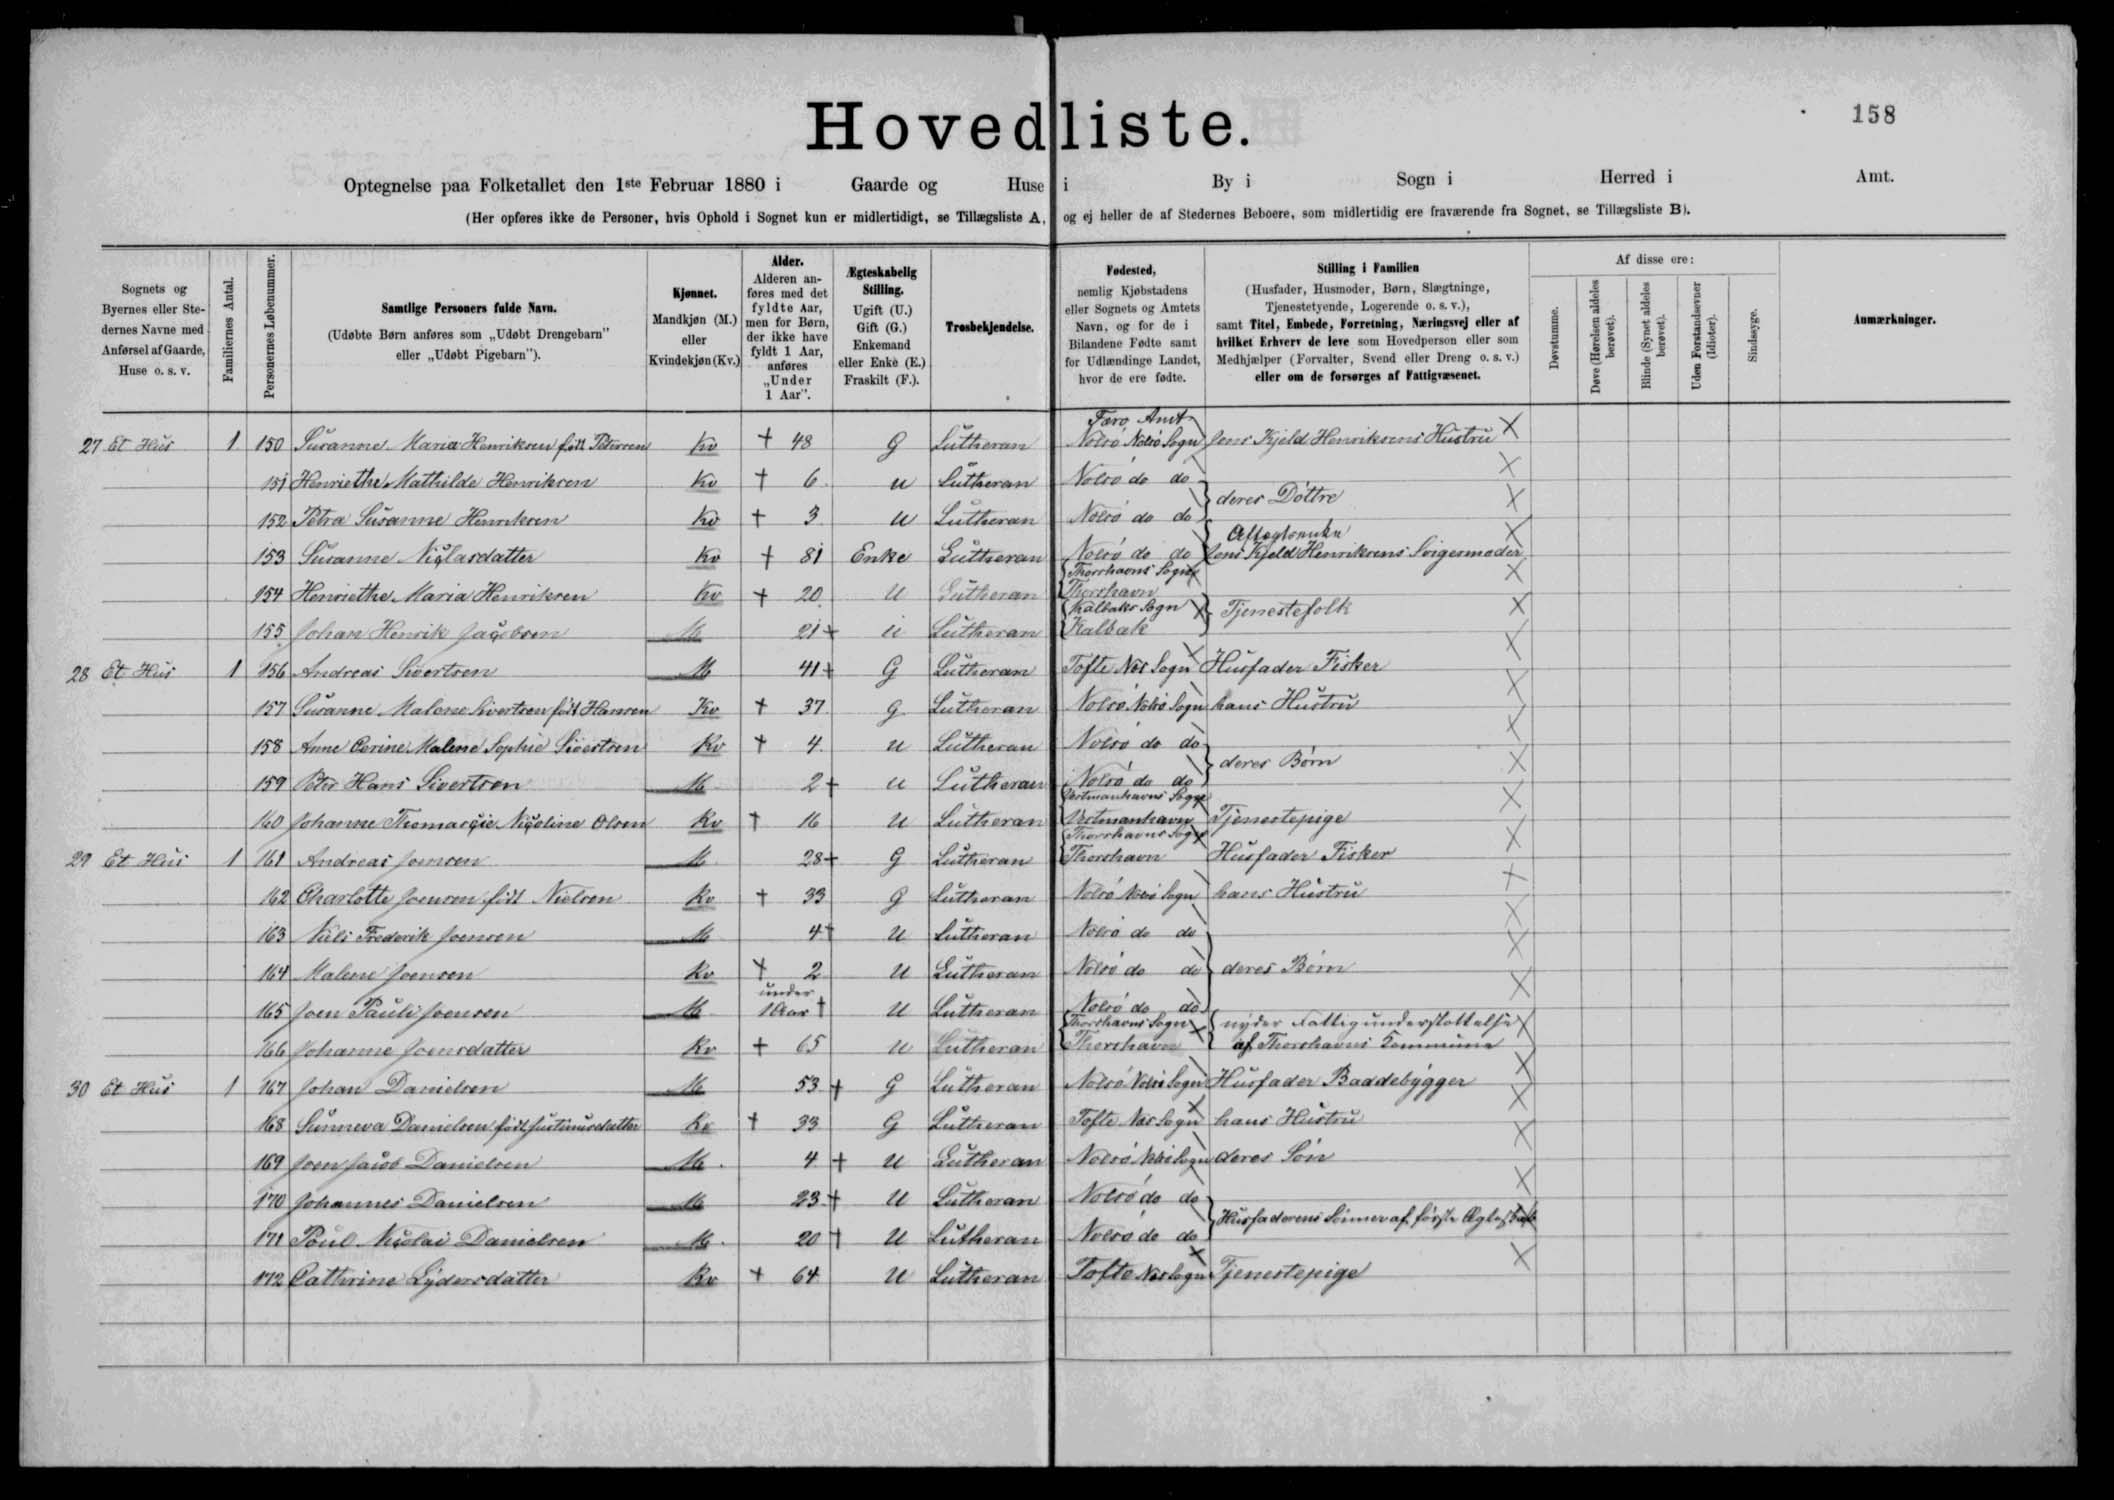 158
Hovedliste.
Optegnelse paa Folketallet den 1ste Februar 1880 i Gaarde og Huse i By i Sogn i Herred i Amt.
(Her opføres ikke de Personer, hvis Ophold i Sognet kun er midlertidigt, se Tillægsliste A, og ej heller de af Stedernes Beboere, som midlertidig ere fraværende fra Sognet, se Tillægsliste B).
Sognets og Byernes eller Stedernes Navne med Anførsel af Gaarde, Huse o. s. v.
Familiernes Antal.
Personernes Løbenummer.
Samtlige Personers fulde Navn.
(Udøbte Børn anføres som „Udøbt Drengebarn" eller „Udøbt Pigebarn").
Kjønnet.
Mandkjøn (M.) eller Kvindekjøn (Kv.)
Alder.
Alderen anføres med det fyldte Aar, men for Børn, der ikke have fyldt 1 Aar, anføres „Under 1 Aar".
Ægteskabelig Stilling.
Ugift (U.) Gift (G.) Enkemand eller Enke (E.) Fraskilt (F.).
Trosbekjendelse.
Fødested,
nemlig Kjøbstadens eller Sognets og Amtets Navn, og for de i Bilandene Fødte samt for Udlændinge Landet, hvor de ere fødte.
Stilling i Familien
(Husfader, Husmoder, Børn, Slægtninge, Tjenestetyende, Logerende o. s. v.), samt Titel, Embede, Forretning, Næringsvej eller af hvilket Erhverv de leve som Hovedperson eller som Medhjælper (Forvalter, Svend eller Dreng o. s. v.) eller om de forsørges af Fattigvæsenet.
Af disse ere:
Døvstumme.
Døve (Hørelsen aldeles berøvet).
Blinde (Synet aldeles berøvet).
Uden Forstandsevner (Idioter).
Sindssyge.
Anmærkninger.
Færo Amt
27 Et Hus 1 150 Susanne Maria Henriksen født Petersen Kv + 48 G Lutheran Nolsö Nolsö Sogn Jens Kjeld Henriksens Hustru X
151 Henriethe Mathilde Henriksen Kv + 6 U Lutheran Nolsö do do X
deres Döttre
152 Petra Susanne Henriksen Kv + 3 U Lutheran Nolsö do do X
Aftægtsenke
153 Susanne Niclasdatter Kv + 81 Enke Lutheran Nolsö do do Jens Kjeld Henriksens Svigermoder X
Thorshavns Sogn
154 Henriethe Maria Henriksen Kv + 20 U Lutheran Thorshavn X
Kalbaks Sogn Tjenestefolk
155 Johan Henrik Jacobsen M 21 + U Lutheran Kalbak X
28 Et Hus 1 156 Andreas Sivertsen M 41 + G Lutheran Tofte Nes Sogn Husfader Fisker X
157 Susanne Malene Sivertsen født Hansen Kv + 37 G Lutheran Nolsö Nolsö Sogn hans Hustru X
158 Anne Cerine Malene Sophie Sivertsen Kv + 4 U Lutheran Nolsö do do X
deres Börn
159 Peter Hans Sivertsen M 2 + U Lutheran Nolsö do do X
Vestmanhavns Sogn
160 Johanne Thomarcie Nicoline Olsen Kv + 16 U Lutheran Vestmanhavn Tjenestepige X
Thorshavns Sogn
29 Et Hus 1 161 Andreas Joensen M 28 + G Lutheran Thorshavn Husfader Fisker X
162 Charlotte Joensen født Nielsen Kv + 33 G Lutheran Nolsö Nolsö Sogn hans Hustru X
163 Niels Frederik Joensen M 4 + U Lutheran Nolsö do do X
164 Malene Joensen Kv + 2 U Lutheran Nolsö do do deres Börn X
under
165 Joen Pauli Joensen M 1 Aar + U Lutheran Nolsö do do X
Thorshavns Sogn nyder Fattigunderstøttelse X
166 Johanne Joensdatter Kv + 65 U Lutheran Thorshavn af Thorshavns Kommune
30 Et Hus 1 167 Johan Danielsen M 53 + G Lutheran Nolsö Nolsö Sogn Husfader Baadebygger X
168 Sunneva Danielsen født Justinusdatter Kv + 33 G Lutheran Tofte Nes Sogn hans Hustru X
169 Joen Jacob Danielsen M 4 + U Lutheran Nolsö Nolsö Sogn deres Sön X
170 Johannes Danielsen M 23 + U Lutheran Nolsö do do X
Husfaderens Sönner af første Ægteskab
171 Poul Nicolai Danielsen M 20 + U Lutheran Nolsö do do X
172 Cathrine Lydersdatter Kv + 64 U Lutheran Tofte Nes Sogn Tjenestepige X